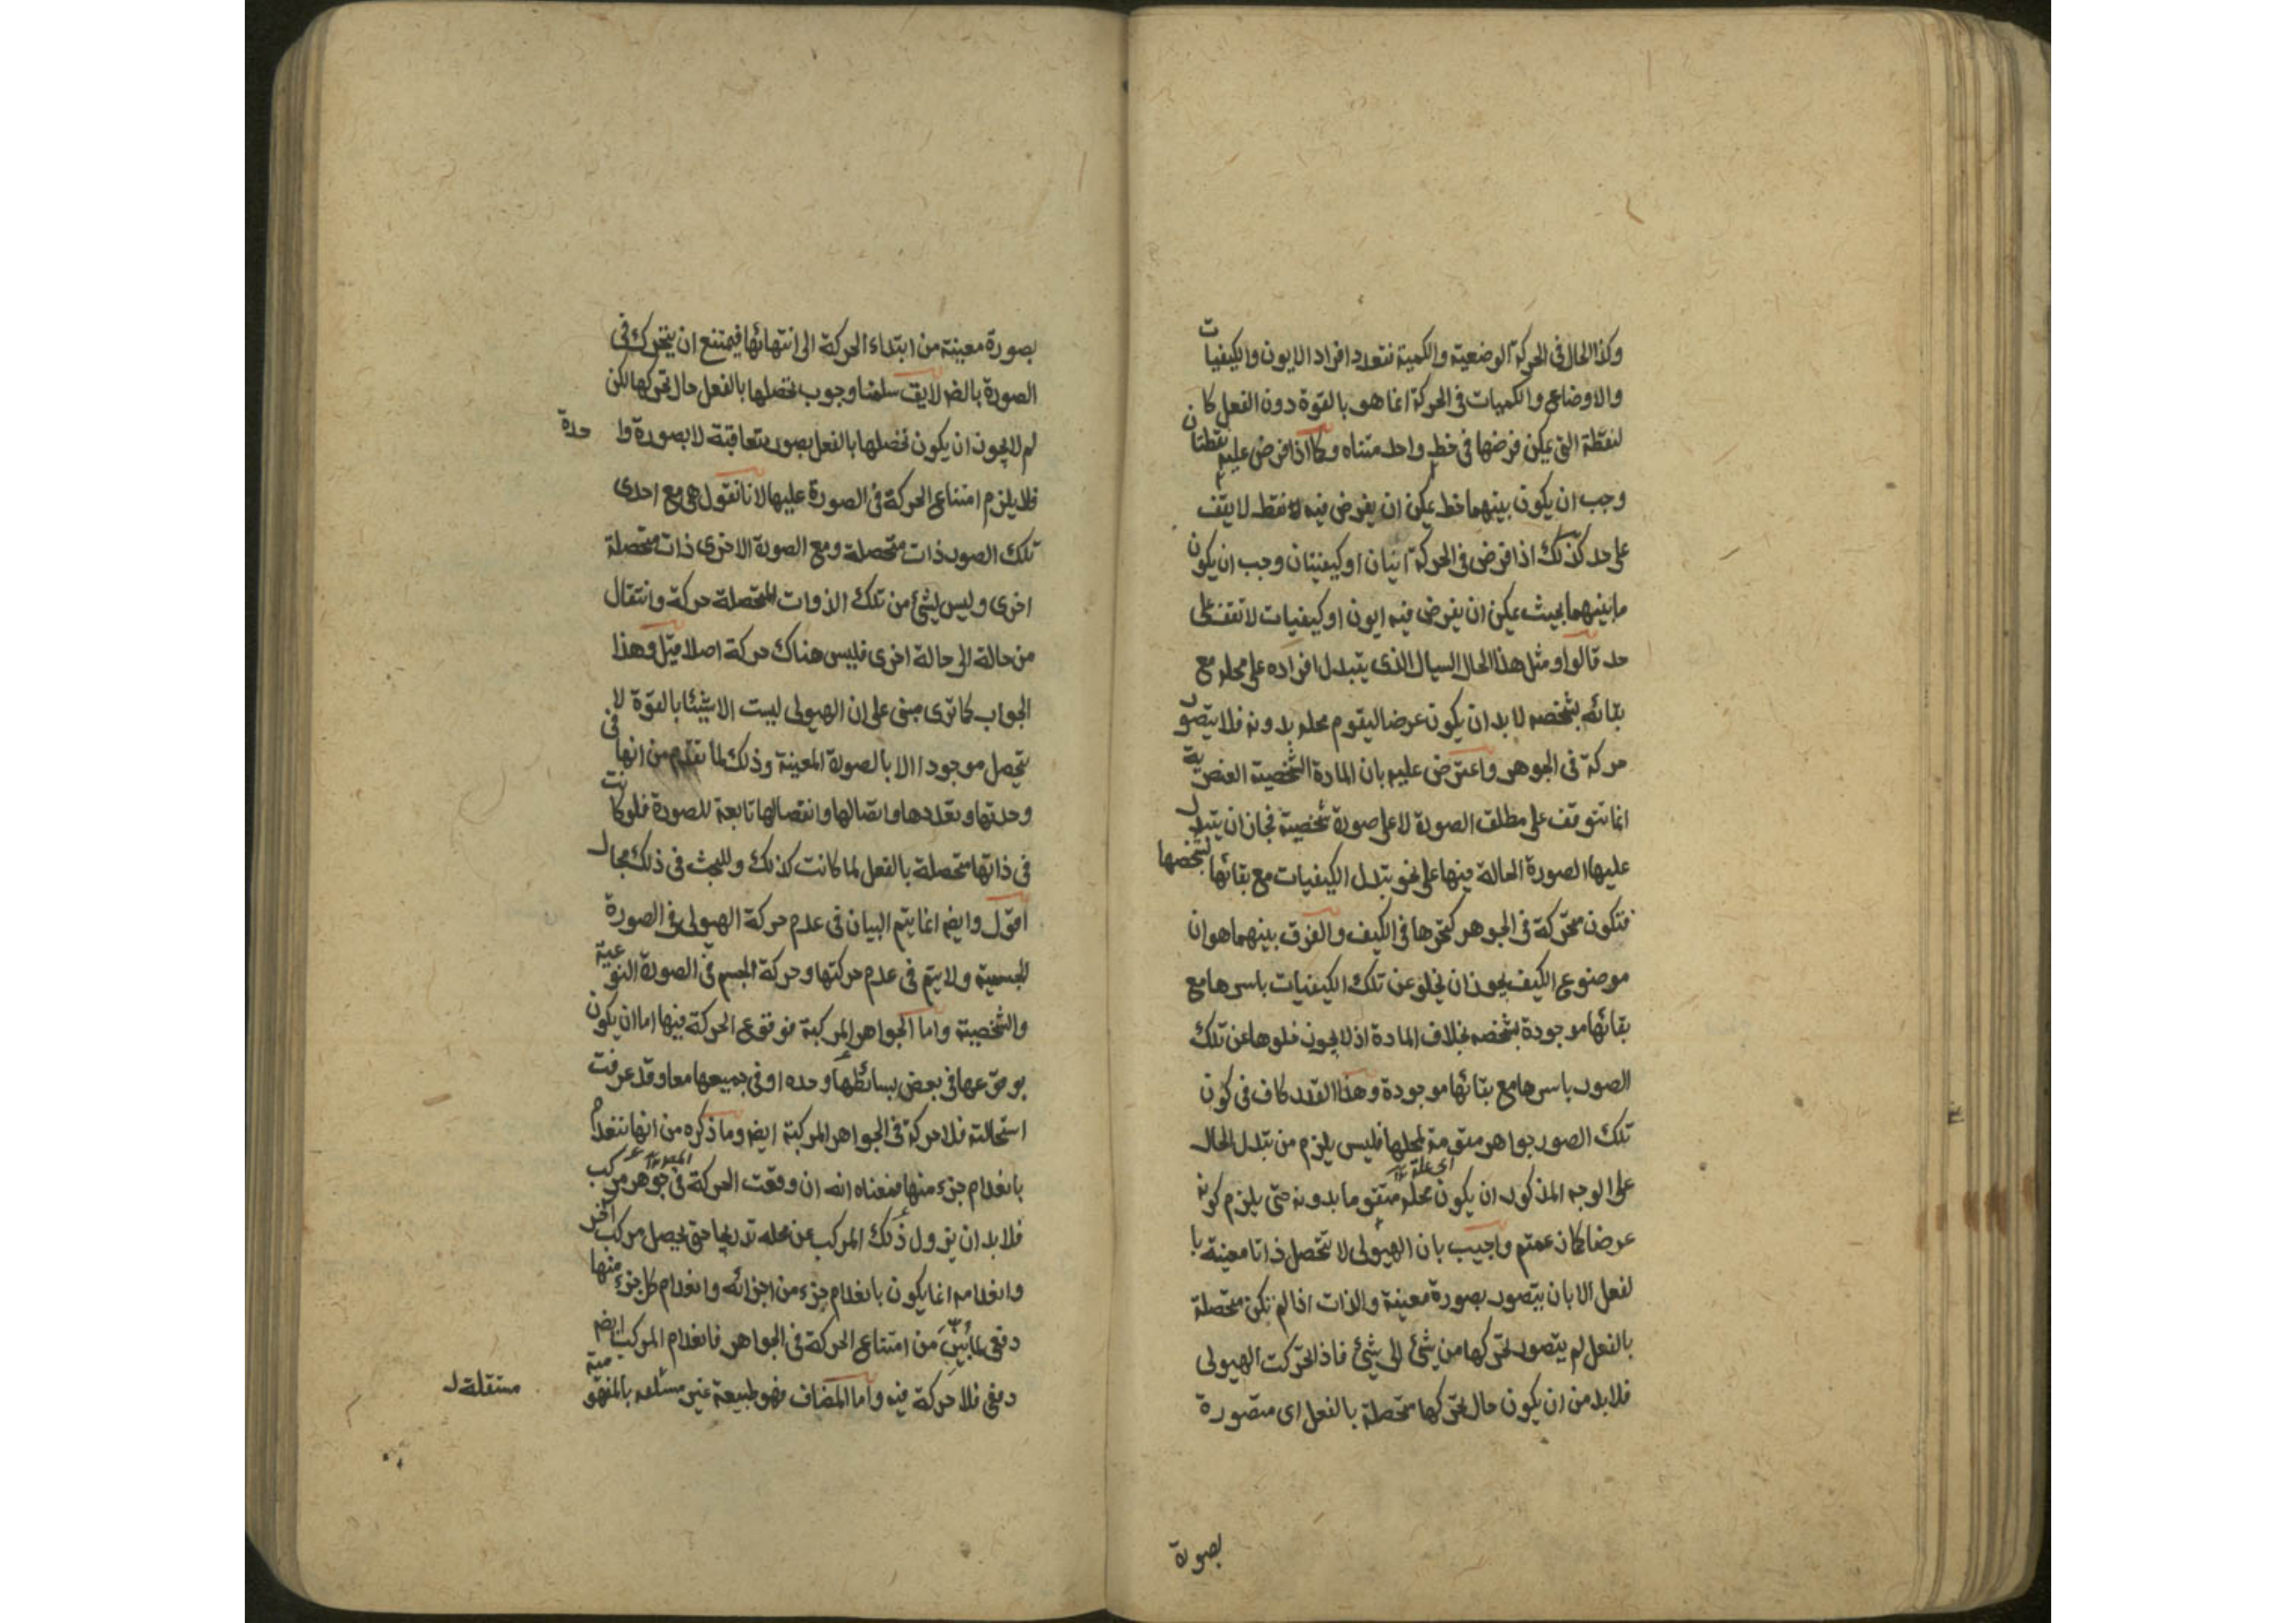 وكذا الحال فى الحركة الوضعية والكمية فتعدد افراد الايون والكيفيات
والاوضاع والكميات فى الحركة انما هو بالقوة دون الفعل كا
لنقطة التى يمكن فرضها فى خط واحد متناه وكما اذا فرض عليه نقطتان
وجب ان يكون بينهما خط يمكن ان يفرض فيه نقط لا يقف
على حد كذلك اذا فرض فى الحركة اينان او كيفيتان وجب ان يكون
ما بينهما بحيث يمكن ان يفرض فيه ايون او كيفيات لا تقف على
حد قالوا ومثل هذا الحال السيال الذى يتبدل افراده على محله مع
بقائه بشخصه لا بد ان يكون عرضا ليقوم محله بدونه فلا يتصور
حركة فى الجوهر واعترض عليه بان المادة الشخصية العنصرية
انما تتوقف على مطلق الصورة لا على صورة شخصية فجاز ان يتبدل
عليها الصورة الحالة فيها على نحو تبدل الكيفيات مع بقائها بشخصها
فتكون متحركة فى الجوهر كتحركها فى الكيف والفرق بينهما هو ان
موضوع الكيف يجوز ان يخلو عن تلك الكيفيات باسرها مع
بقائها موجودة بشخصه بخلاف المادة اذ لا يجوز خلوها عن تلك
الصور باسرها مع بقائها موجودة وهذا القدر كاف فى كون
تلك الصور جواهر مقومة لمحلها فليس يلزم من تبدل الحال
على الوجه المذكور ان يكون محله اى علته متقوما بدونه حتى يلزم كونه
عرضا كما زعمتم واجيب بان الهيولى لا تتحصل ذاتا معينة با
لفعل الا بان يتصور بصورة معينة والذات اذا لم تكن متحصلة
بالفعل لم يتصور تحركها من شئ الى شئ فاذا تحركت الهيولى
فلا بد من ان يكون حال تحركها متحصلة بالفعل اى متصورة
بصورة
بصورة معينة من ابتداء الحركة الى انتهائها فيمتنع ان يتحرك فى
الصورة بالضر لايق سلمنا وجوب تحصلها بالفعل حال تحركها لكن
لم لا يجوز ان يكون تحصلها بالفعل بصور متعاقبة لا بصورة واحدة
فلا يلزم امتناع الحركة فى الصورة عليها لانا نقول هى مع احدى
تلك الصور ذات متحصلة ومع الصورة الاخرى ذات متحصلة
اخرى وليس لشئ من تلك الذوات المتحصلة حركة وانتقال
من حالة الى حالة اخرى فليس هناك حركة اصلا قيل وهذا
الجواب كما ترى مبنى على ان الهيولى ليست الا شيئا بالقوة لا
يتحصل موجودا الا بالصورة المعينة وذلك لما تقدم من انها فى
وحدتها وتعددها واتصالها وانفصالها تابعة للصورة فلو كانت
فى ذاتها متحصلة بالفعل لما كانت كذلك وللبحث فى ذلك مجال
اقول وايض انما يتم البيان فى عدم حركة الهيولى فى الصورة
الجسمية ولا يتم فى عدم حركتها وحركة الجسم فى الصورة النوعية
والشخصية واما الجواهر المركبة فوقوع الحركة فيها اما ان يكون
بوقوعها فى بعض بسائطها وحده او فى جميعها معا وقد عرفت
استحالته فلا حركة فى الجواهر المركبة ايض وما ذكره من انها تنعدم
بانعدام جزء منها فمعناه انه ان وقعت الحركة فى جوهر مركب
فلا بد ان يزول ذلك المركب عن محله تدريجا حتى يحصل مركب آخر
وانعدامه انما يكون بانعدام جزء من اجزائه وانعدام كل جزء منها
دفعى لما بين من امتناع الحركة فى الجواهر فانعدام المركب ايض
دفعى فلا حركة فيه واما المضاف فهو طبيعة غير بالمفهومية
مستقلة